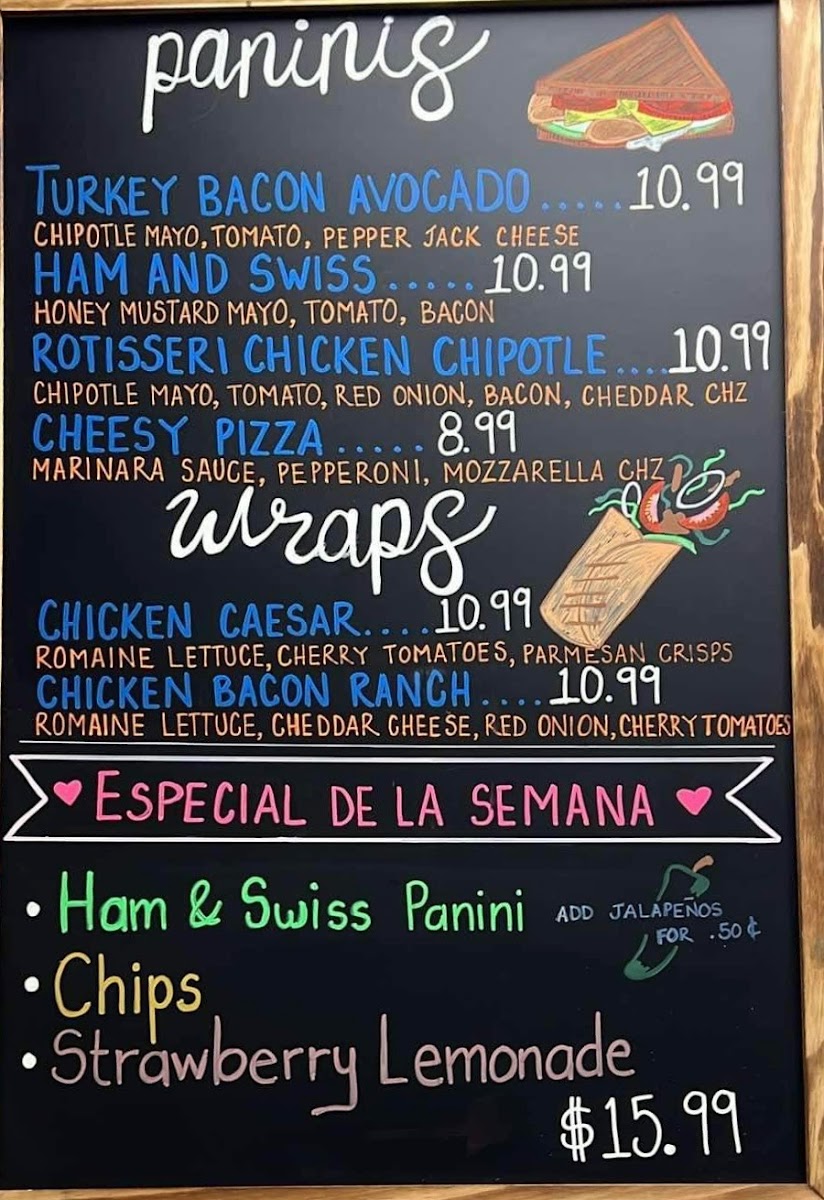 paninis
TURKEY BACON AVOCADO.....10.99
CHIPOTLE MAYO, TOMATO, PEPPER JACK CHEESE
HAM AND SWISS.....10.99
HONEY MUSTARD MAYO, TOMATO, BACON
ROTISSERI CHICKEN CHIPOTLE....10.99
CHIPOTLE MAYO, TOMATO, RED ONION, BACON, CHEDDAR CHZ
CHEESY PIZZA.....8.99
MARINARA SAUCE, PEPPERONI, MOZZARELLA CHZ
wraps
CHICKEN CAESAR....10.99
ROMAINE LETTUCE, CHERRY TOMATOES, PARMESAN CRISPS
CHICKEN BACON RANCH....10.99
ROMAINE LETTUCE, CHEDDAR CHEESE, RED ONION, CHERRY TOMATOES
♥ ESPECIAL DE LA SEMANA ♥
• Ham & Swiss Panini
ADD JALAPEÑOS
FOR .50¢
• Chips
• Strawberry Lemonade
$15.99